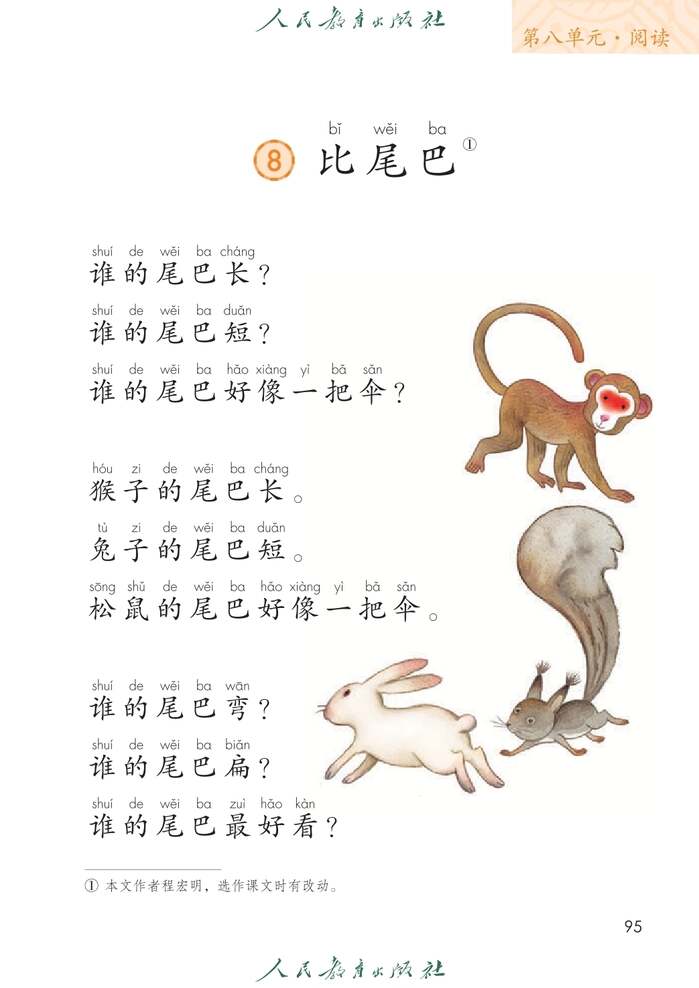 人民教育出版社
第八单元·阅读
bǐ wěi ba
8 比尾巴①
shuí de wěi ba cháng
谁的尾巴长？
shuí de wěi ba duǎn
谁的尾巴短？
shuí de wěi ba hǎo xiàng yì bǎ sǎn
谁的尾巴好像一把伞？
hóu zi de wěi ba cháng
猴子的尾巴长。
tù zi de wěi ba duǎn
兔子的尾巴短。
sōng shǔ de wěi ba hǎo xiàng yì bǎ sǎn
松鼠的尾巴好像一把伞。
shuí de wěi ba wān
谁的尾巴弯？
shuí de wěi ba biǎn
谁的尾巴扁？
shuí de wěi ba zuì hǎo kàn
谁的尾巴最好看？
① 本文作者程宏明，选作课文时有改动。
95
人民教育出版社